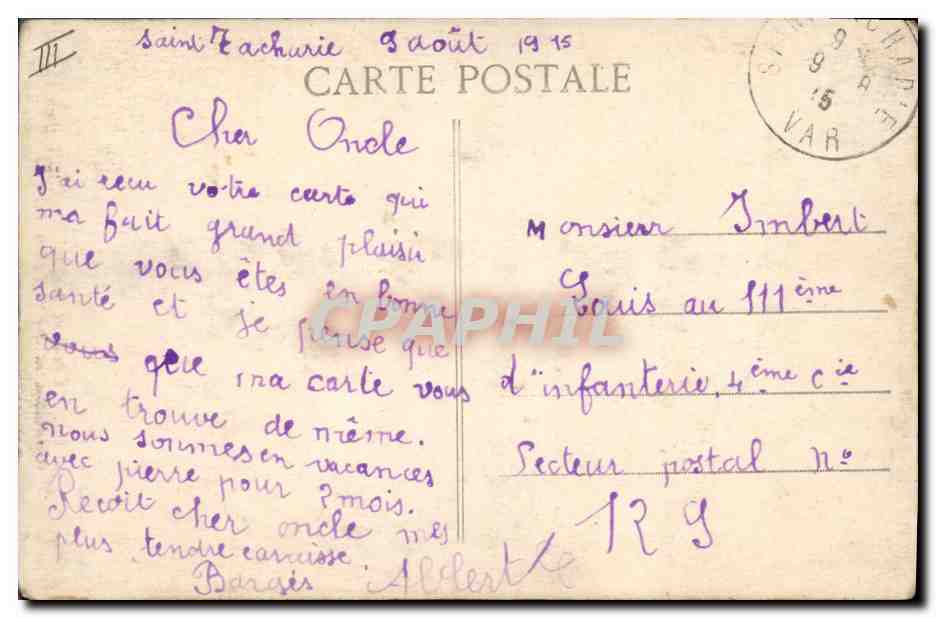 III
Saint Zacharie 9 août 1915
CARTE POSTALE
Cher Oncle
J'ai recu votre carte qui
ma fait grand plaisir
que vous êtes en bonne
santé et je pense que
vous que ma carte vous
en trouve de même.
nous sommes en vacances
avec pierre pour 2 mois.
Recoit cher oncle mes
plus tendre caraisse
Bargès Albert
Monsieur Imbert
Louis au 111ème
d'infanterie, 4ème Cie
Secteur postal no
129
VAR
9
9 8
15
CPAPHIL